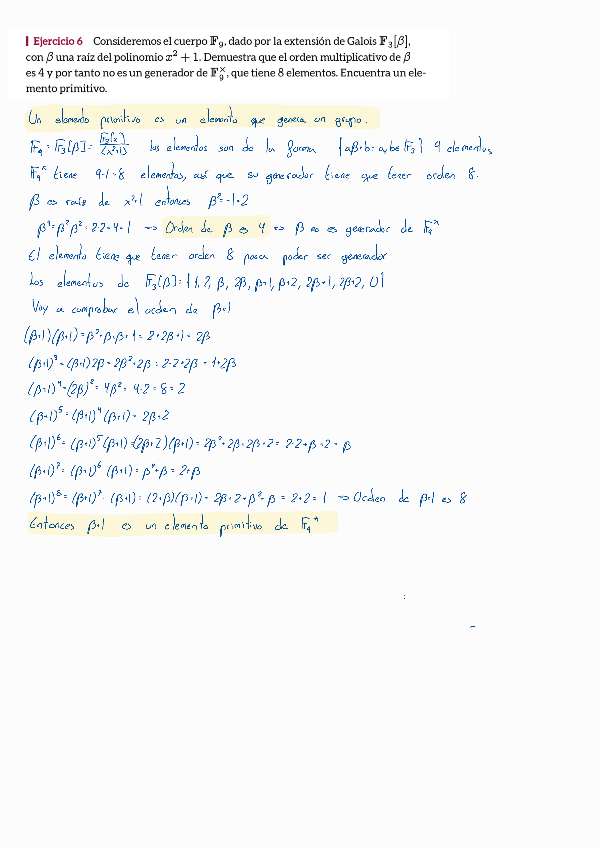 Ejercicio 6 Consideremos el cuerpo 𝔽₉, dado por la extensión de Galois 𝔽₃[β],
con β una raíz del polinomio x² + 1. Demuestra que el orden multiplicativo de β
es 4 y por tanto no es un generador de 𝔽₉ˣ, que tiene 8 elementos. Encuentra un ele-
mento primitivo.
Un elemento primitivo es un elemento que genera un grupo.
𝔽₉ = 𝔽₃[β] = 𝔽₃[x]/(x²+1) los elementos son de la forma {aβ+b : a,b∈𝔽₃} 9 elementos
𝔽₉ˣ tiene 9-1=8 elementos, así que su generador tiene que tener orden 8.
β es raíz de x²+1 entonces β²=-1=2
β⁴=β²β²=2·2=4=1 => Orden de β es 4 => β no es generador de 𝔽₉ˣ
El elemento tiene que tener orden 8 para poder ser generador
Los elementos de 𝔽₃[β]={1, 2, β, 2β, β+1, β+2, 2β+1, 2β+2, 0}
Voy a comprobar el orden de β+1
(β+1)(β+1)=β²+β+β+1=2+2β+1=2β
(β+1)³=(β+1)2β=2β²+2β=2·2+2β=1+2β
(β+1)⁴=(2β)²=4β²=4·2=8=2
(β+1)⁵=(β+1)⁴(β+1)=2β+2
(β+1)⁶=(β+1)⁵(β+1)=(2β+2)(β+1)=2β²+2β+2β+2=2·2+β+2=β
(β+1)⁷=(β+1)⁶(β+1)=β²+β=2+β
(β+1)⁸=(β+1)⁷·(β+1)=(2+β)(β+1)=2β+2+β²+β=2+2=1 => Orden de β+1 es 8
Entonces β+1 es un elemento primitivo de 𝔽₉ˣ